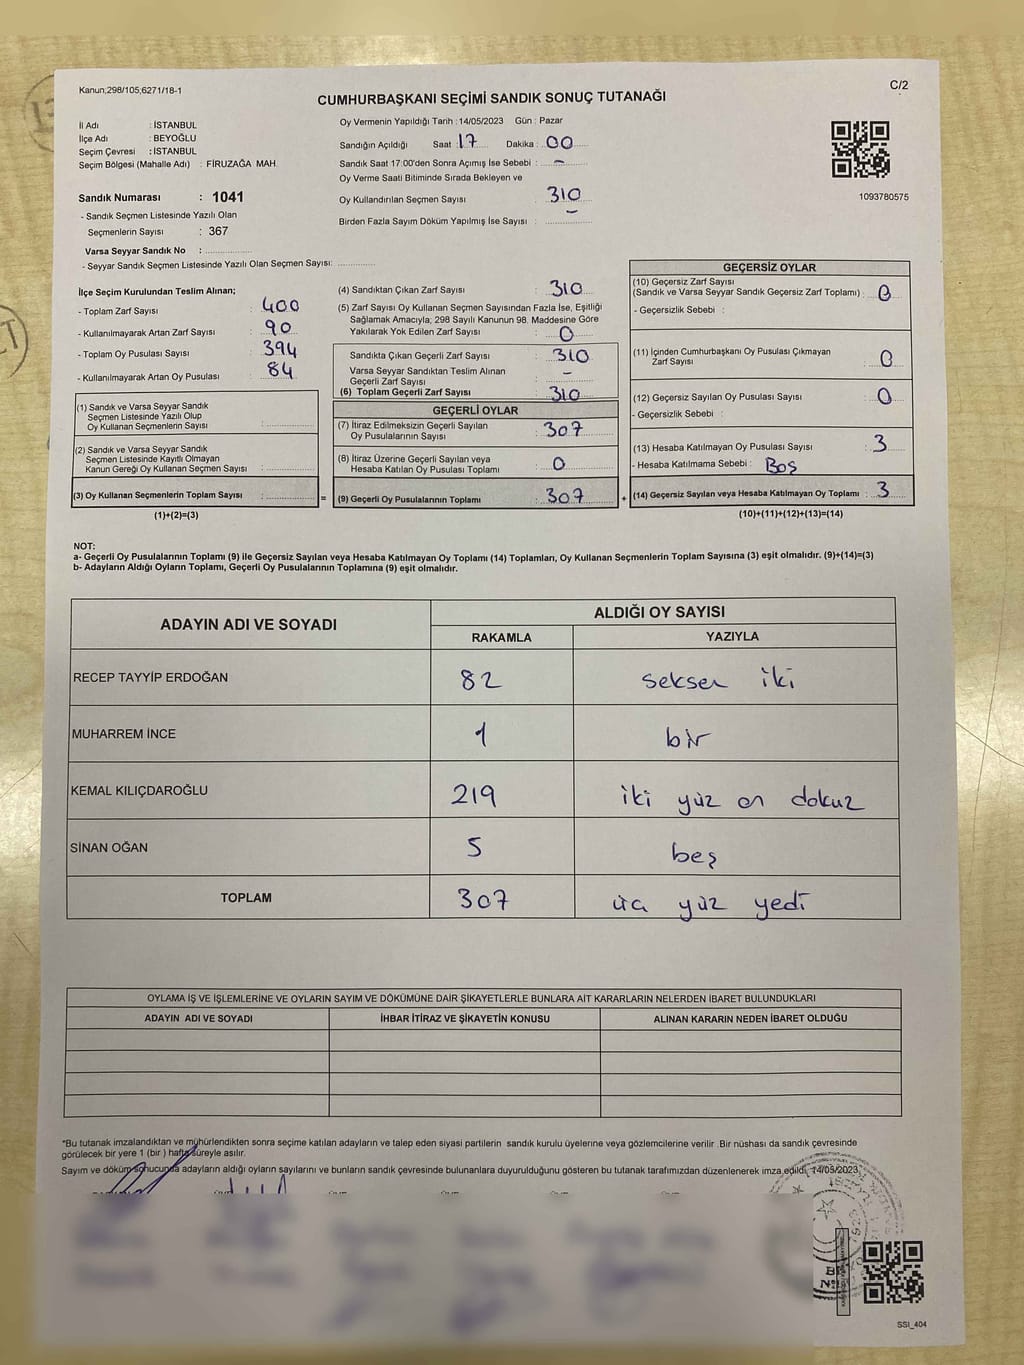 Kanun;298/105;6271/18-1
C/2
CUMHURBAŞKANI SEÇİMİ SANDIK SONUÇ TUTANAĞI
İl Adı : İSTANBUL
İlçe Adı : BEYOĞLU
Seçim Çevresi : İSTANBUL
Seçim Bölgesi (Mahalle Adı) : FİRUZAĞA MAH.
Sandık Numarası : 1041
- Sandık Seçmen Listesinde Yazılı Olan
Seçmenlerin Sayısı : 367
Varsa Seyyar Sandık No :
- Seyyar Sandık Seçmen Listesinde Yazılı Olan Seçmen Sayısı:
Oy Vermenin Yapıldığı Tarih : 14/05/2023 Gün : Pazar
Sandığın Açıldığı Saat : 17 Dakika : 00
Sandık Saat 17:00'den Sonra Açımış İse Sebebi : -
Oy Verme Saati Bitiminde Sırada Bekleyen ve
Oy Kullandırılan Seçmen Sayısı : 310
Birden Fazla Sayım Döküm Yapılmış İse Sayısı : -
1093780575
İlçe Seçim Kurulundan Teslim Alınan;
- Toplam Zarf Sayısı : 400
- Kullanılmayarak Artan Zarf Sayısı : 90
- Toplam Oy Pusulası Sayısı : 394
- Kullanılmayarak Artan Oy Pusulası : 84
(1) Sandık ve Varsa Seyyar Sandık
Seçmen Listesinde Yazılı Olup
Oy Kullanan Seçmenlerin Sayısı :
(2) Sandık ve Varsa Seyyar Sandık
Seçmen Listesinde Kayıtlı Olmayan
Kanun Gereği Oy Kullanan Seçmen Sayısı :
(3) Oy Kullanan Seçmenlerin Toplam Sayısı :
(1)+(2)=(3)
=
(4) Sandıktan Çıkan Zarf Sayısı : 310
(5) Zarf Sayısı Oy Kullanan Seçmen Sayısından Fazla İse, Eşitliği
Sağlamak Amacıyla; 298 Sayılı Kanunun 98. Maddesine Göre
Yakılarak Yok Edilen Zarf Sayısı : 0
Sandıkta Çıkan Geçerli Zarf Sayısı : 310
Varsa Seyyar Sandıktan Teslim Alınan
Geçerli Zarf Sayısı : -
(6) Toplam Geçerli Zarf Sayısı : 310
GEÇERLİ OYLAR
(7) İtiraz Edilmeksizin Geçerli Sayılan
Oy Pusulalarının Sayısı : 307
(8) İtiraz Üzerine Geçerli Sayılan veya
Hesaba Katılan Oy Pusulası Toplamı : 0
(9) Geçerli Oy Pusulalarının Toplamı : 307
+
GEÇERSİZ OYLAR
(10) Geçersiz Zarf Sayısı
(Sandık ve Varsa Seyyar Sandık Geçersiz Zarf Toplamı) : 0
- Geçersizlik Sebebi :
(11) İçinden Cumhurbaşkanı Oy Pusulası Çıkmayan
Zarf Sayısı : 0
(12) Geçersiz Sayılan Oy Pusulası Sayısı : 0
- Geçersizlik Sebebi :
(13) Hesaba Katılmayan Oy Pusulası Sayısı : 3
- Hesaba Katılmama Sebebi : Boş
(14) Geçersiz Sayılan veya Hesaba Katılmayan Oy Toplamı : 3
(10)+(11)+(12)+(13)=(14)
NOT:
a- Geçerli Oy Pusulalarının Toplamı (9) ile Geçersiz Sayılan veya Hesaba Katılmayan Oy Toplamı (14) Toplamları, Oy Kullanan Seçmenlerin Toplam Sayısına (3) eşit olmalıdır. (9)+(14)=(3)
b- Adayların Aldığı Oyların Toplamı, Geçerli Oy Pusulalarının Toplamına (9) eşit olmalıdır.
ADAYIN ADI VE SOYADI
ALDIĞI OY SAYISI
RAKAMLA YAZIYLA
RECEP TAYYİP ERDOĞAN 82 seksen iki
MUHARREM İNCE 1 bir
KEMAL KILIÇDAROĞLU 219 iki yüz on dokuz
SİNAN OĞAN 5 beş
TOPLAM 307 üç yüz yedi
OYLAMA İŞ VE İŞLEMLERİNE VE OYLARIN SAYIM VE DÖKÜMÜNE DAİR ŞİKAYETLERLE BUNLARA AİT KARARLARIN NELERDEN İBARET BULUNDUKLARI
ADAYIN ADI VE SOYADI İHBAR İTİRAZ VE ŞİKAYETİN KONUSU ALINAN KARARIN NEDEN İBARET OLDUĞU
*Bu tutanak imzalandıktan ve mühürlendikten sonra seçime katılan adayların ve talep eden siyasi partilerin sandık kurulu üyelerine veya gözlemcilerine verilir .Bir nüshası da sandık çevresinde
görülecek bir yere 1 (bir ) hafta süreyle asılır.
Sayım ve döküm sonucunda adayların aldığı oyların sayılarını ve bunların sandık çevresinde bulunanlara duyurulduğunu gösteren bu tutanak tarafımızdan düzenlenerek imza edildi. 14/05/2023
SSI_404